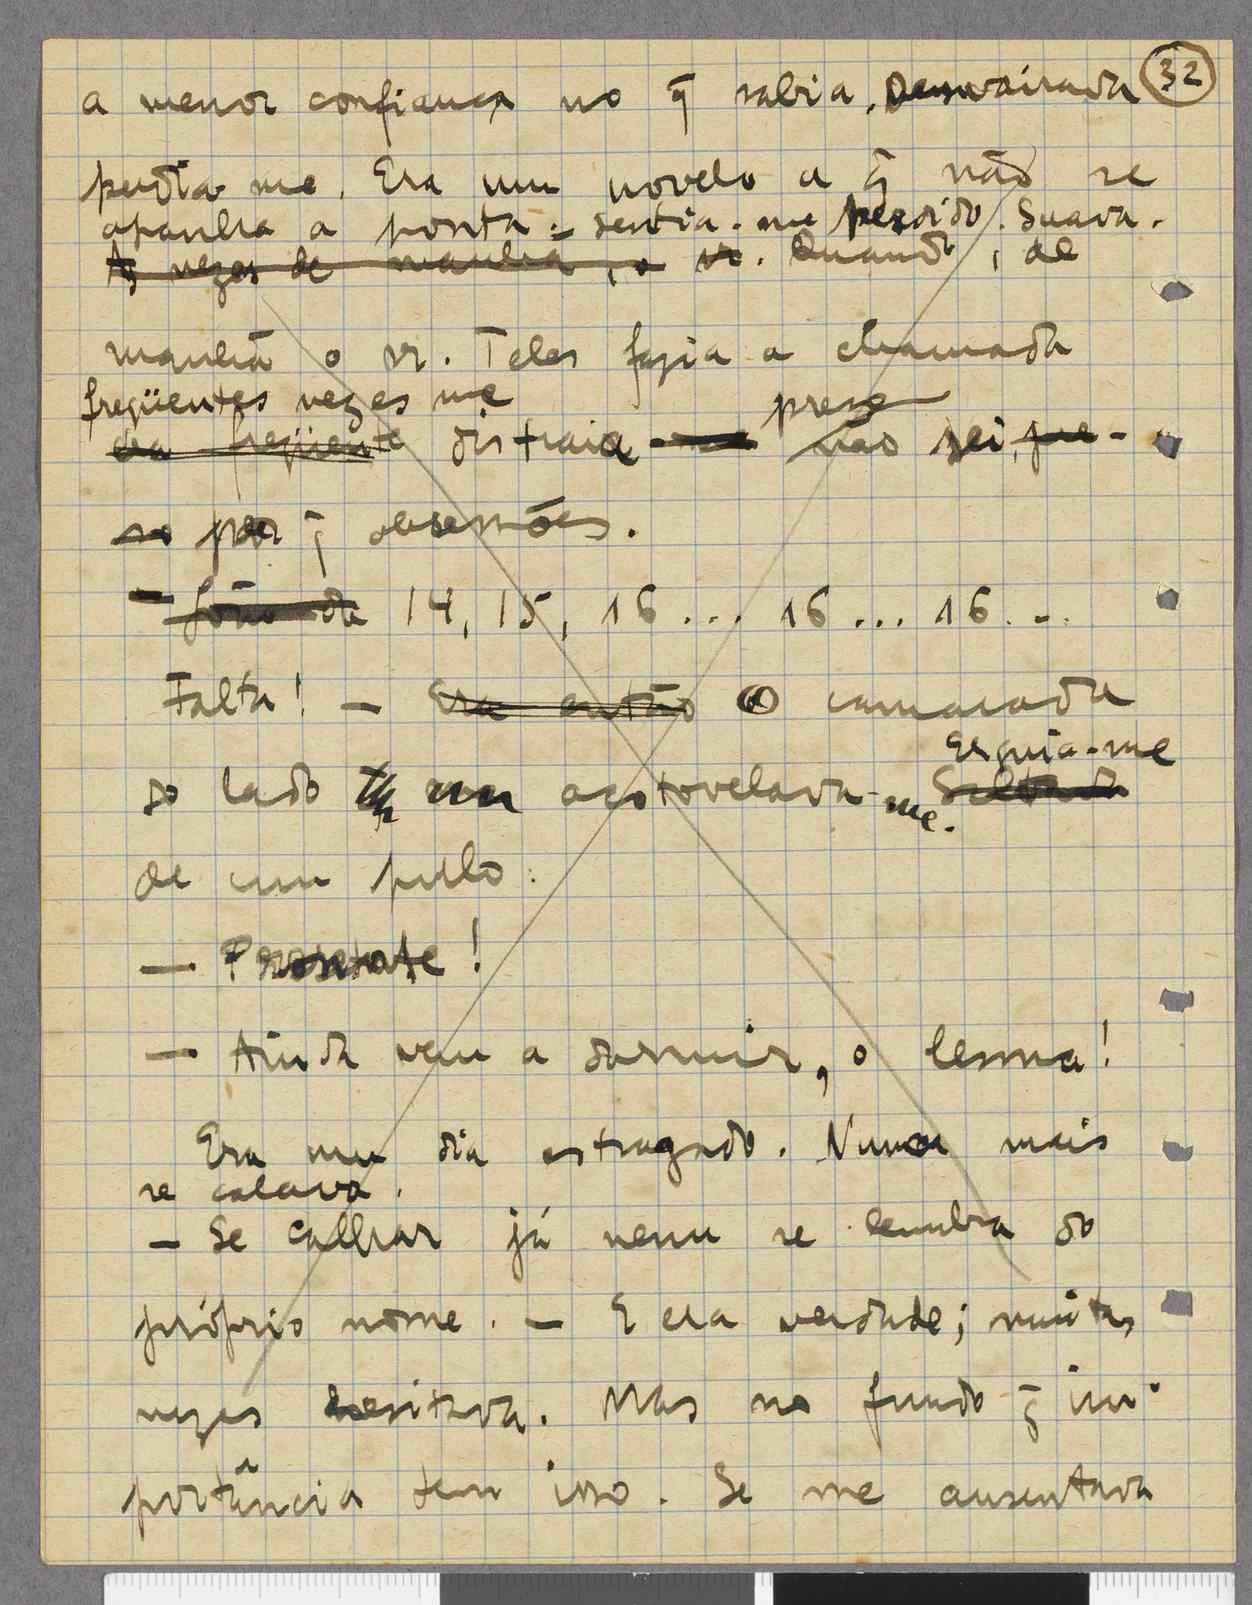 32
a menor confiança no q̃ sabia. Desvairada
perdia-me. Era um novelo a q̃ não se
apanha a ponta. - sentia-me perdido. Suava.
As vezes de manhã, o sr. Quando, de
manhã o sr. Teles fazia a chamada
freqüentes vezes me preso
era freqüente distraia-me não sei, pre-
so por q̃ obsessões.
- 14, 15, 16... 16... 16...
Falta! - Era então O camarada
do lado acotovelava-me. Erguia-me
de um pulo.
- Presente!
- Ainda vem a dormir, o lesma!
Era um dia estragado. Nunca mais
se calava.
- Se calhar já nem se lembra do
próprio nome. - E era verdade; muitas
vezes hesitava. Mas no fundo q̃ im-
portância tem isso. Se me ausentava